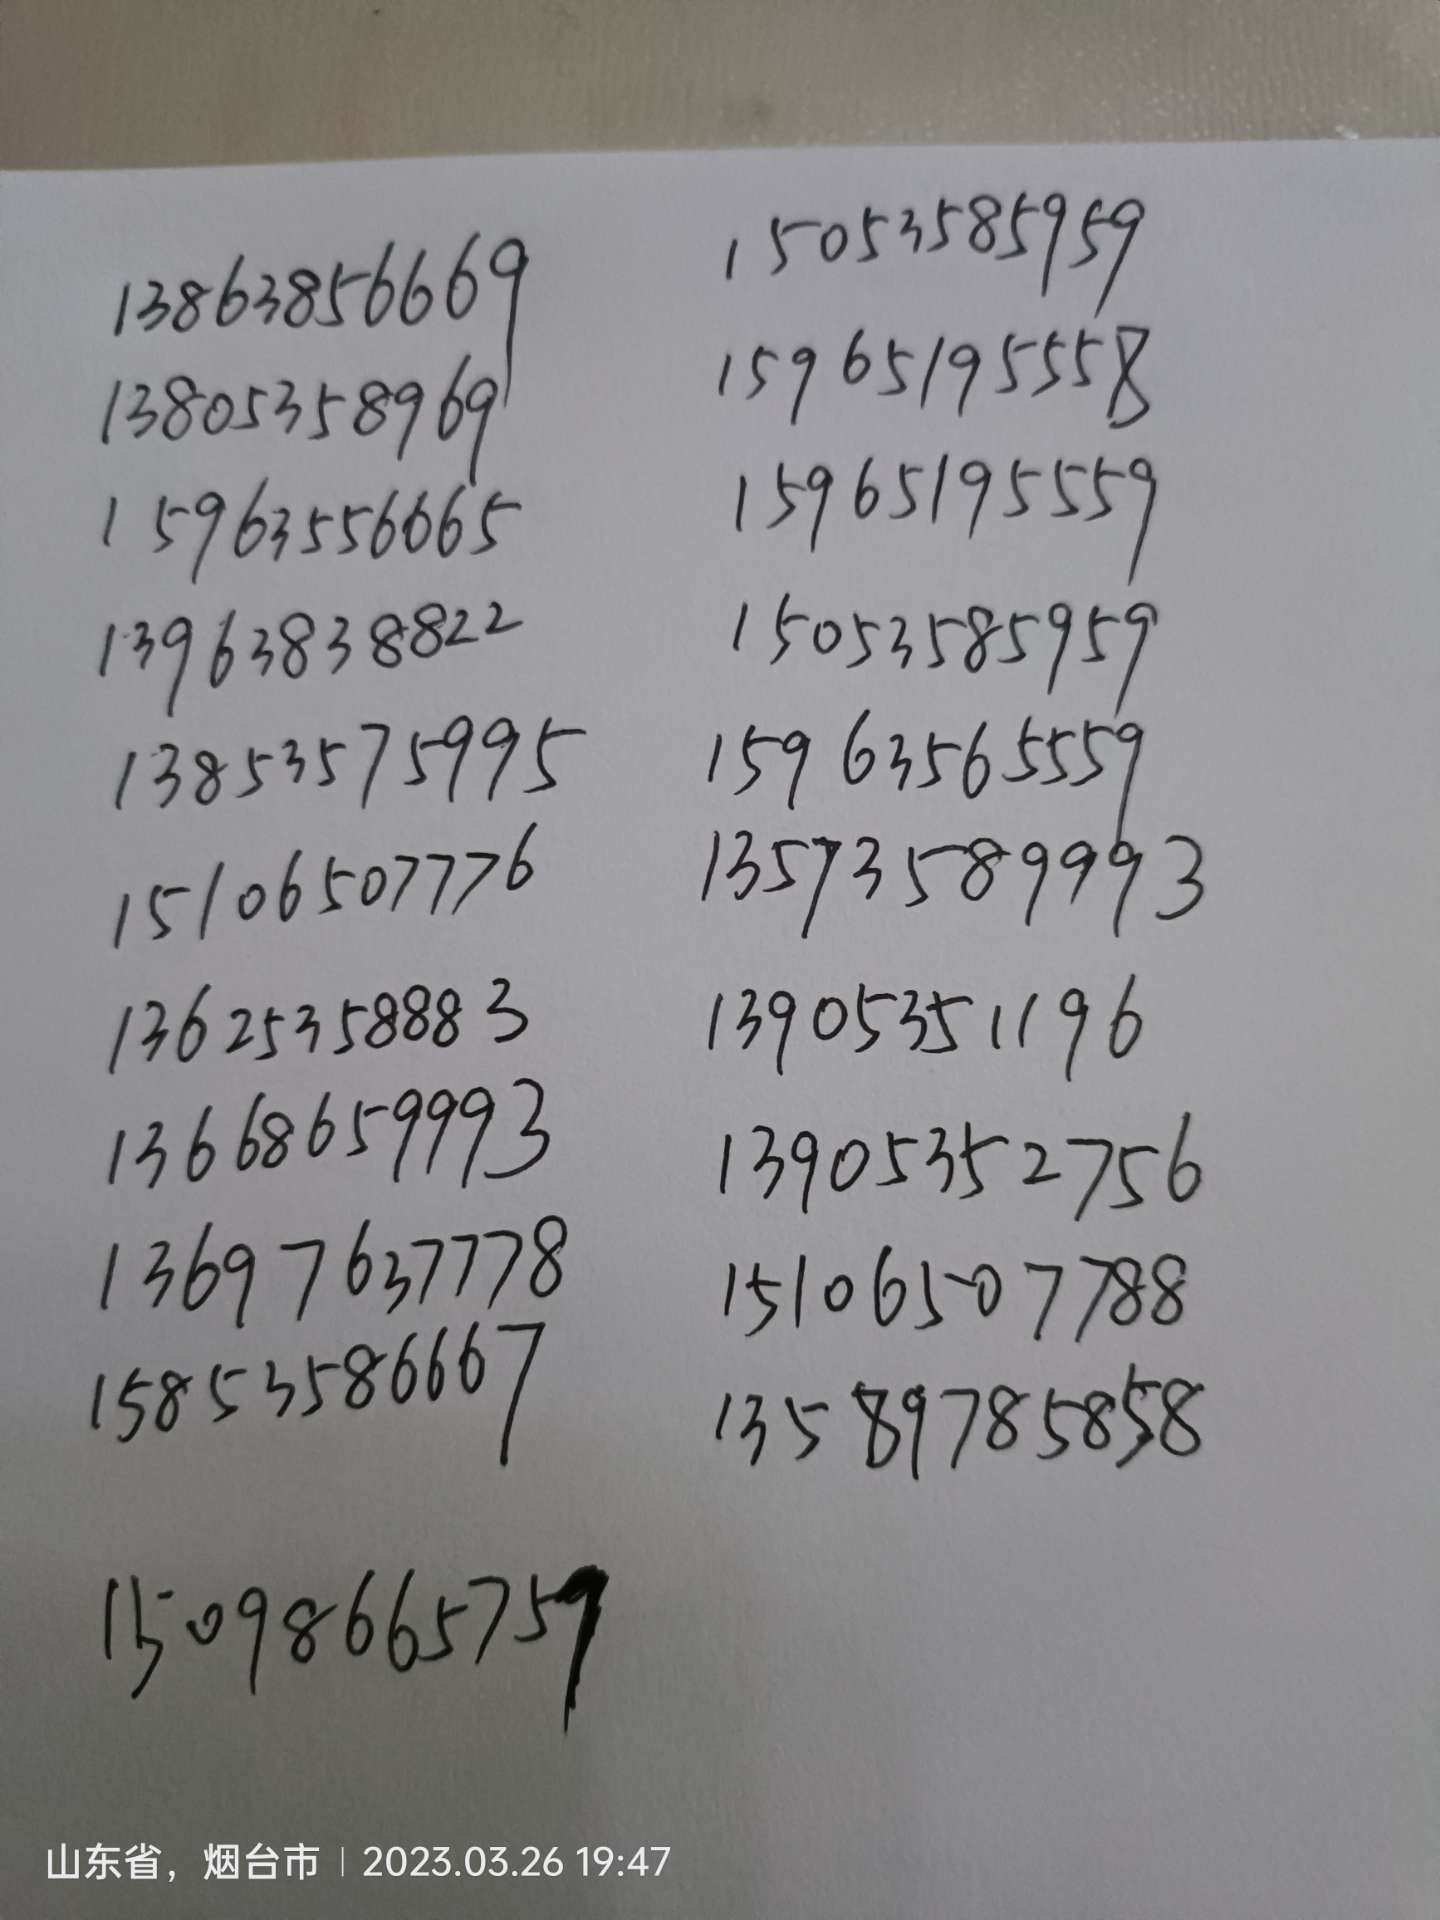 13863856669
13805358969
15963556665
13963838822
13853575995
15106507776
13625358883
13668659993
13697637778
15853586667
15098665759
15053585959
15965195558
15965195559
15053585959
15963565559
13573589993
13905351196
13905352756
15106507788
13589785858
山东省，烟台市 | 2023.03.26 19:47